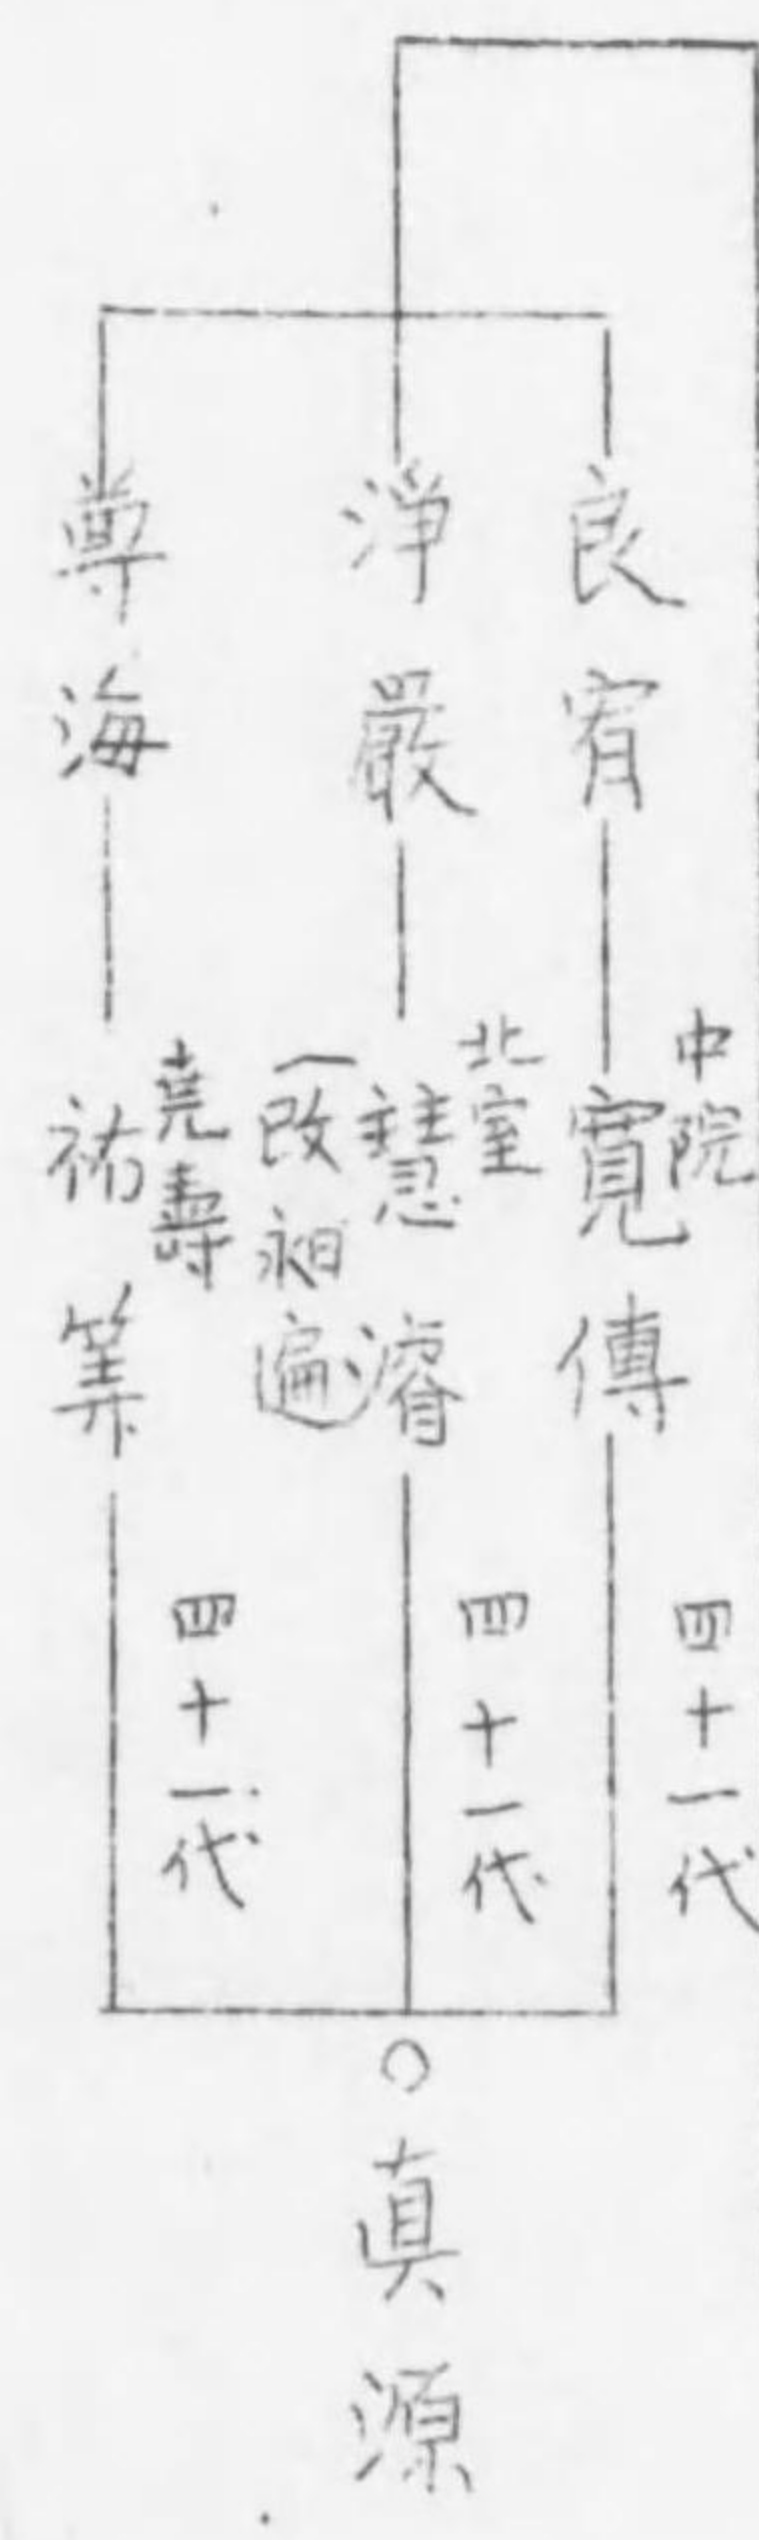 良宥
中院
寛傳
四十一代
淨嚴
北室
慧濬
(改祒遍)
四十一代
尊海
堯壽
祐筭
四十一代
○真源